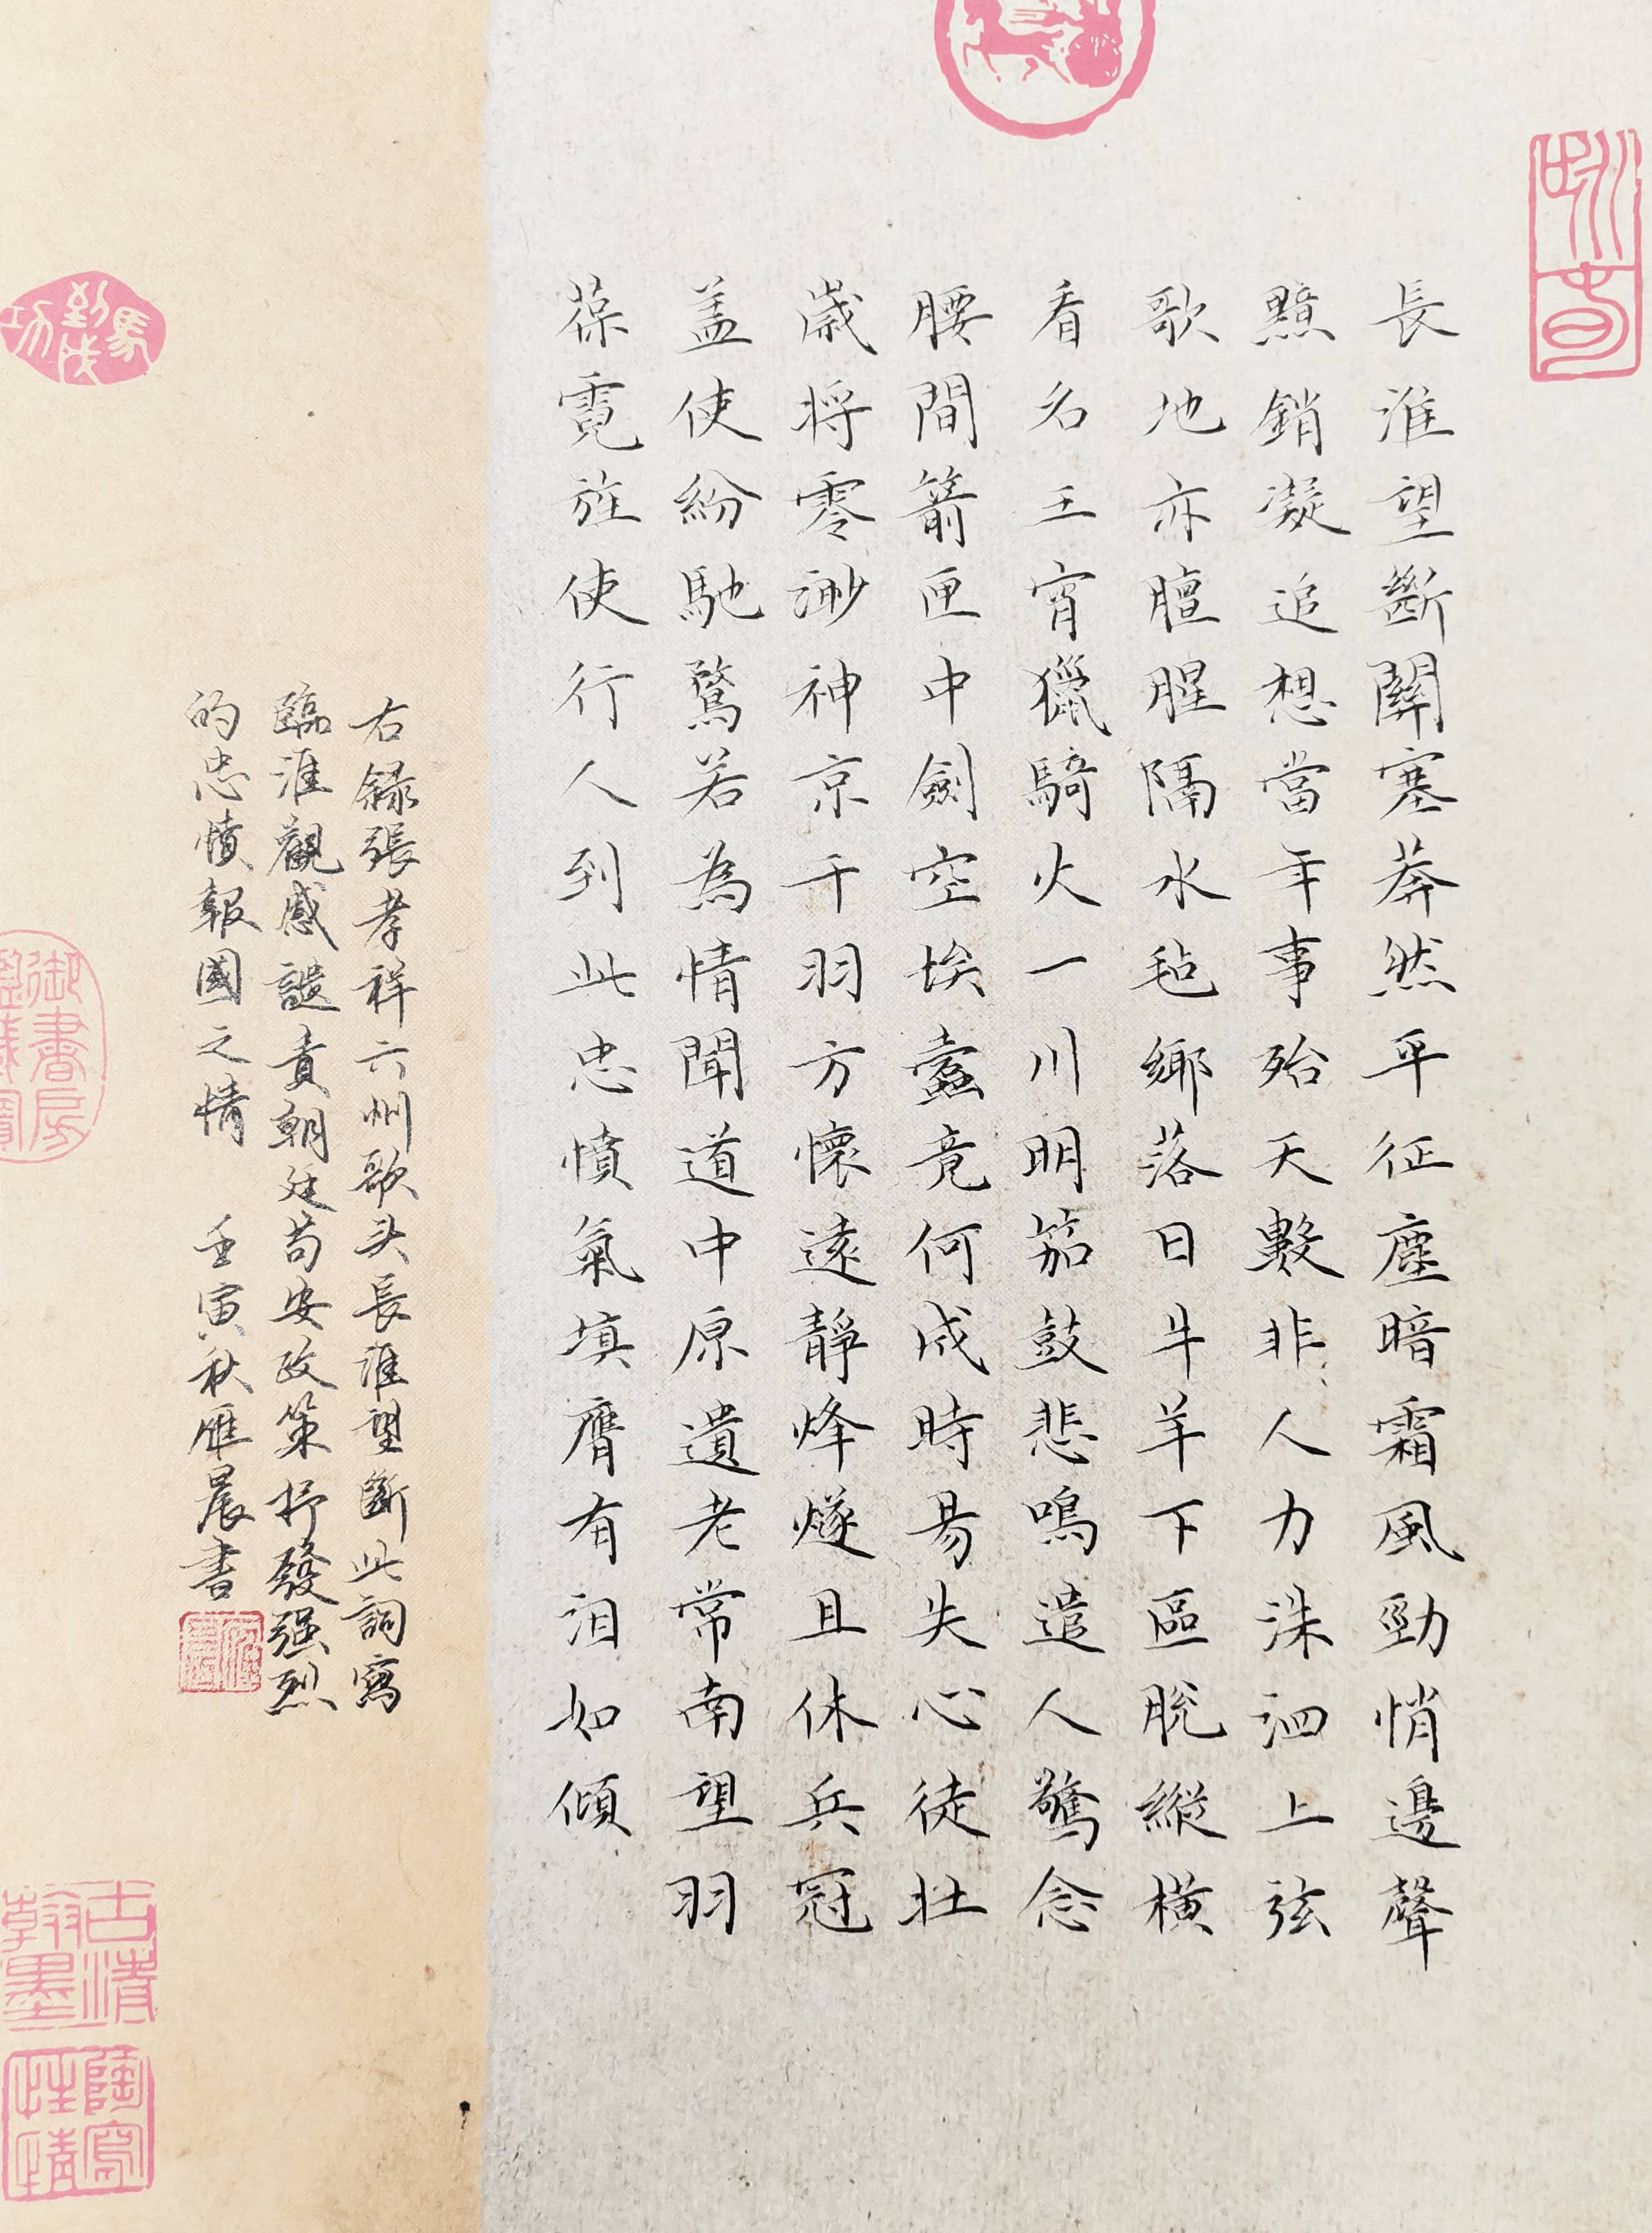 長淮望斷關塞莽然平征塵暗霜風勁悄邊聲
黯銷凝追想當年事殆天數非人力洙泗上弦
歌地亦膻腥隔水氈鄉落日牛羊下區脫縱橫
看名王宵獵騎火一川明笳鼓悲鳴遣人驚念
腰間箭匣中劍空埃蠹竟何成時易失心徒壯
歲將零渺神京干羽方懷遠靜烽燧且休兵冠
盖使紛馳騖若為情聞道中原遺老常南望羽
葆霓旌使行人到此忠憤氣填膺有泪如傾
右録張孝祥六州歌头長淮望斷此詞寫
臨淮觀感譴責朝廷苟安政策抒發强烈
的忠憤報國之情 壬寅秋雁晨書
馬到成功
御書房
古清翰墨
陶寫性情